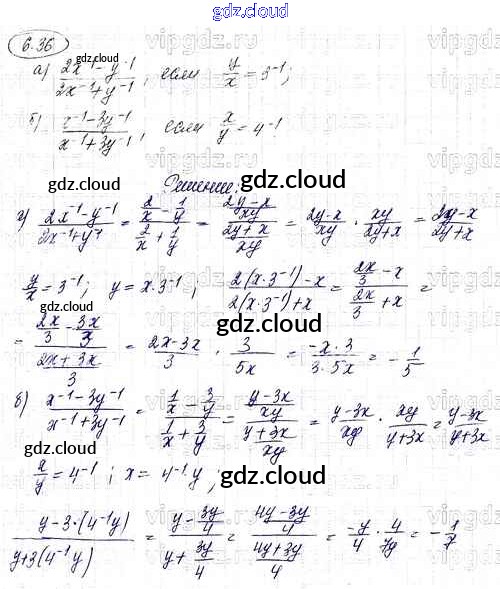 gdz.cloud
6.36
а) (2x⁻¹ - y⁻¹)/(2x⁻¹ + y⁻¹), если y/x = 3⁻¹;
gdz.cloud
б) (x⁻¹ - 3y⁻¹)/(x⁻¹ + 3y⁻¹), если x/y = 4⁻¹
gdz.cloud
Решение:
gdz.cloud
а) (2x⁻¹ - y⁻¹)/(2x⁻¹ + y⁻¹) = (2/x - 1/y)/(2/x + 1/y) = ((2y - x)/xy)/((2y + x)/xy) = (2y - x)/xy · xy/(2y + x) = (2y - x)/(2y + x)
y/x = 3⁻¹; y = x · 3⁻¹; (2(x · 3⁻¹) - x)/(2(x · 3⁻¹) + x) = (2x/3 - x)/(2x/3 + x) =
gdz.cloud
= (2x/3 - 3x/3)/((2x + 3x)/3) = (2x - 3x)/3 · 3/5x = (-x · 3)/(3 · 5x) = - 1/5
gdz.cloud
б) (x⁻¹ - 3y⁻¹)/(x⁻¹ + 3y⁻¹) = (1/x - 3/y)/(1/x + 3/y) = ((y - 3x)/xy)/((y + 3x)/xy) = (y - 3x)/xy · xy/(y + 3x) = (y - 3x)/(y + 3x)
gdz.cloud
x/y = 4⁻¹; x = 4⁻¹y;
gdz.cloud
(y - 3 · (4⁻¹y))/(y + 3(4⁻¹y)) = (y - 3y/4)/(y + 3y/4) = ((4y - 3y)/4)/((4y + 3y)/4) = -y/4 · 4/7y = - 1/7